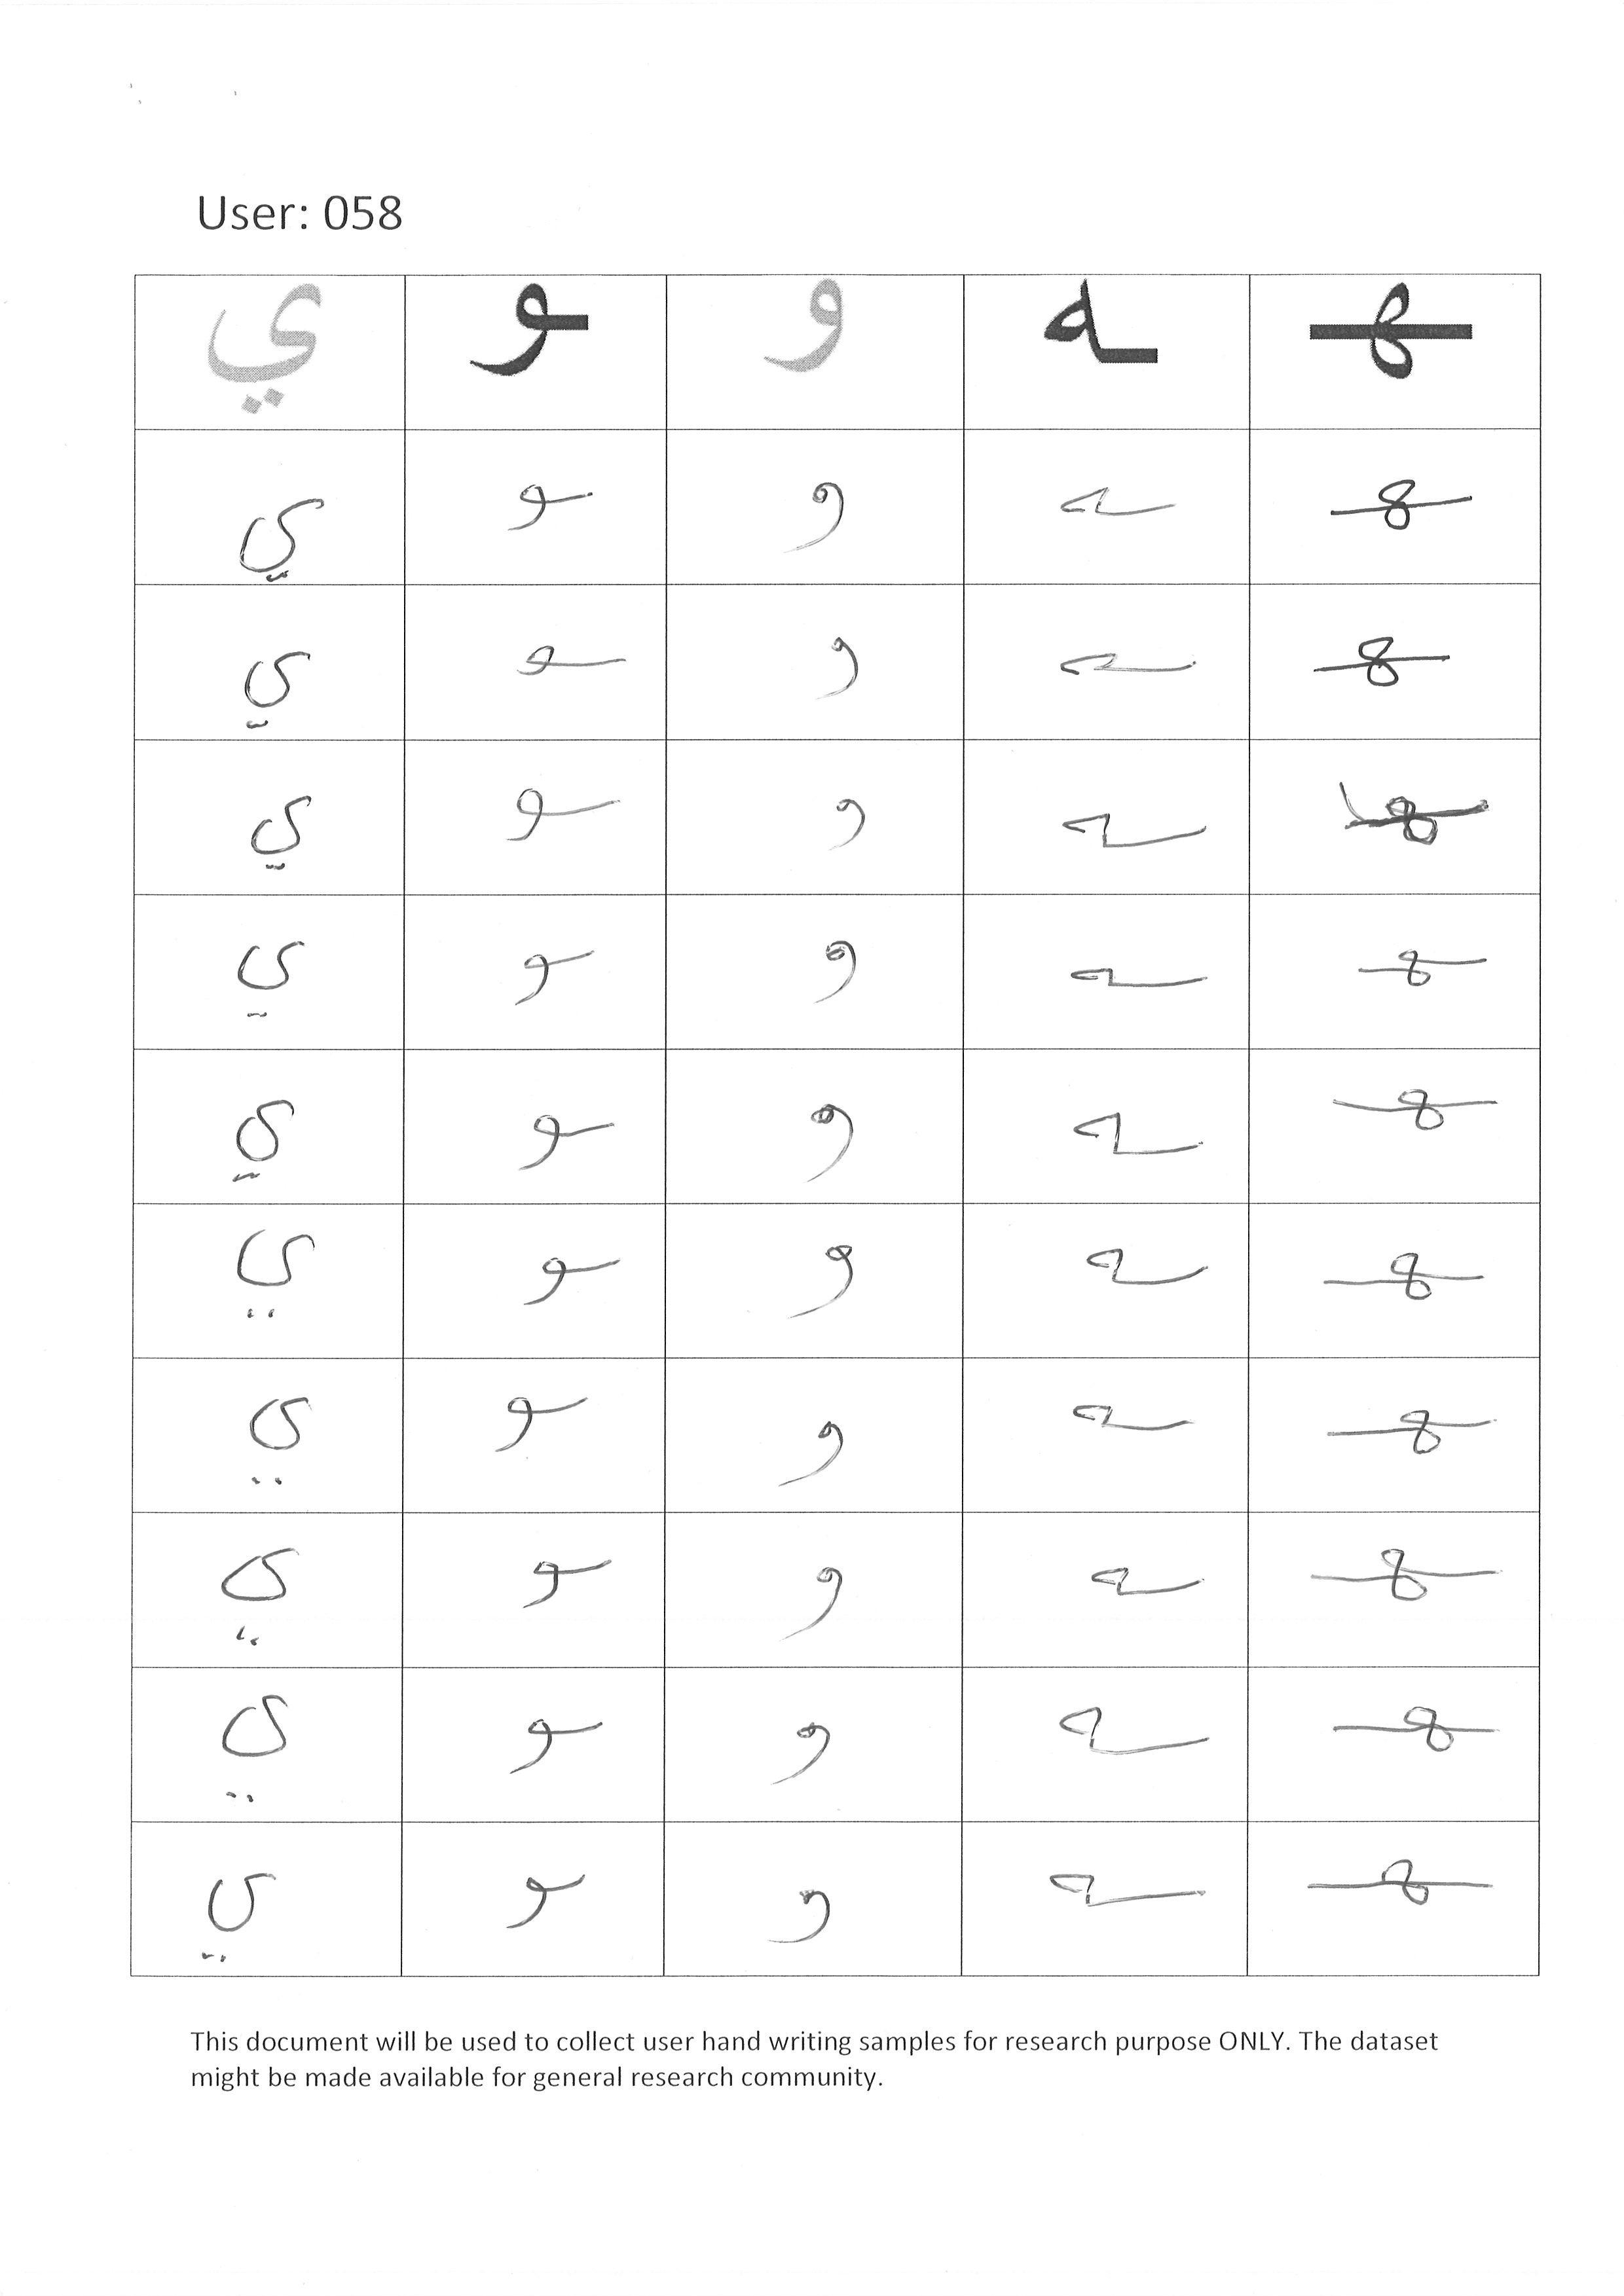 User: 058
ي ـو و ـه ـهـ
ي ـو و ـه ـهـ
ي ـو و ـه ـهـ
ي ـو و ـه ـهـ
ي ـو و ـه ـهـ
ي ـو و ـه ـهـ
ي ـو و ـه ـهـ
ي ـو و ـه ـهـ
ي ـو و ـه ـهـ
ي ـو و ـه ـهـ
ي ـو و ـه ـهـ
This document will be used to collect user hand writing samples for research purpose ONLY. The dataset
might be made available for general research community.